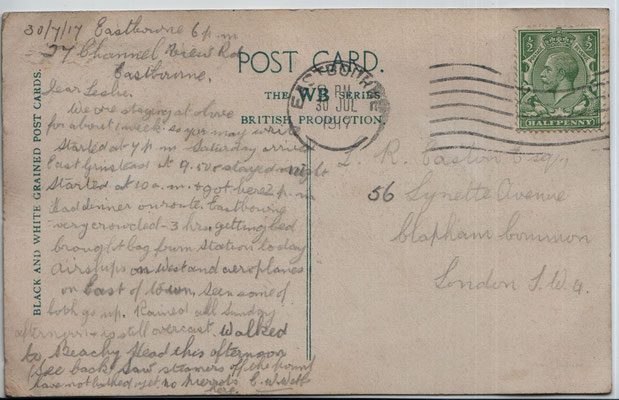 30/7/17 Eastbourne 6 p.m
27 Channel View Rd
Eastbourne.
Dear Leslie.
We are staying at above
for about 1 week so you may write
Started at 4 p.m Saturday arrived
East Grinstead at 9.50 stayed night
Started at 10 a.m. + got here 2 p.m
Had dinner on route. Eastbourne
very crowded - 3 hrs. getting bed
brought bag from station today
airships on West and aeroplanes
on East of town. Seen some of
both go up. Rained all Sunday
afternoon + is still overcast. Walked
to Beachy Head this afternoon
(See back) Saw steamers off the point
have not bathed yet, no
here. C. W. Webb
BLACK AND WHITE GRAINED POST CARDS.
POST CARD.
THE WB SERIES
BRITISH PRODUCTION.
EASTBOURNE
PM
30 JUL
1917
½ ½
HALFPENNY
L. R. Easton Esq.,
56 Lynette Avenue
Clapham Common
London S.W.4.